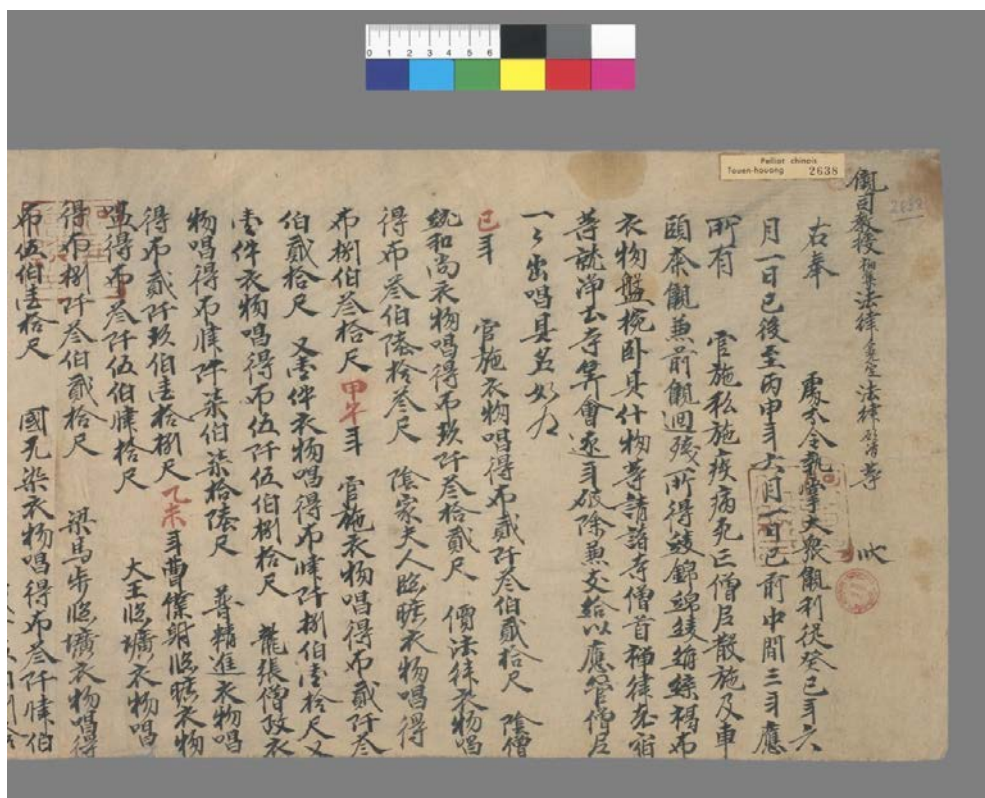 Pelliot chinois
Touen-houang 2638
0 1 2 3 4 5 6
2638
儭司教授福集法律金光定法律願清等 狀
右奉 處分令執掌大眾儭利從癸巳年六
月一日已後至丙申年六月一日已前中間三年應
所有 官施私施疾病死亡僧尼散施及車
頭齋儭兼前儭迴殘所得綾錦綿綾絹緤褐布
衣物盤椀臥具什物等請諸寺僧首禪律老宿
等就淨土寺筭會逐年破除兼交給以應管僧尼
一々出唱具名如後
巳年 官施衣物唱得布貳阡叁伯貳拾尺 陰僧
統和尚衣物唱得布玖阡叁拾貳尺 價法律衣物唱
得布叁伯陸拾叁尺 陰家夫人臨壙衣物唱得
布捌伯叁拾尺 甲午年 官施衣物唱得布貳阡叁
伯貳拾尺 又壹件衣物唱得布肆阡捌伯壹拾尺又
壹件衣物唱得布伍阡伍伯捌拾尺 龍張僧政衣
物唱得布肆阡柒伯柒拾陸尺 普精進衣物唱
得布貳阡玖伯壹拾捌尺 乙未年曹僕射臨壙衣物
唱得布叁阡伍伯肆拾尺 大王臨壙衣物唱
得布捌阡叁伯貳拾尺 梁馬步臨壙衣物唱得
布伍伯壹拾尺 國无染衣物唱得布叁阡肆伯